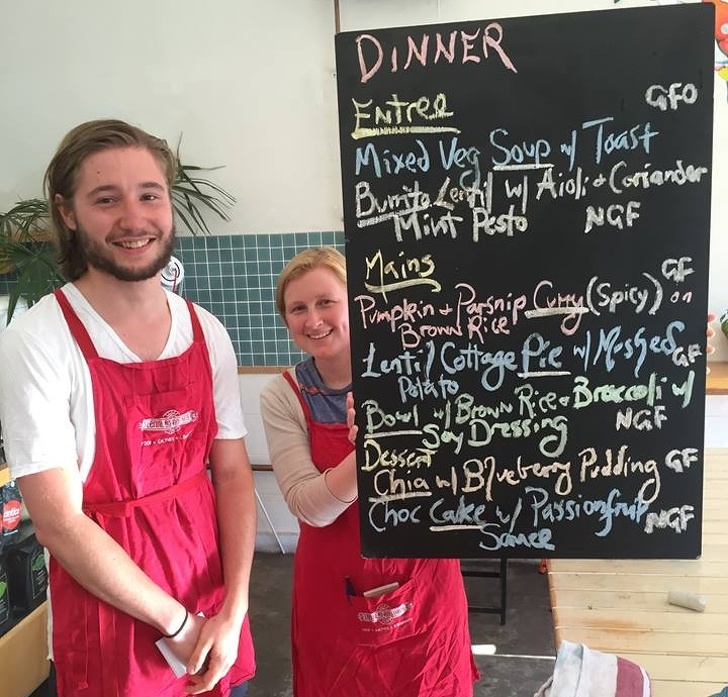 DINNER
Entree GFO
Mixed Veg Soup w/ Toast
Burrito Lentil w/ Aioli + Coriander
Mint Pesto NGF
Mains GF
Pumpkin + Parsnip Curry (Spicy) on
Brown Rice
Lentil Cottage Pie w/ Mashed GF
Potato
Bowl w/ Brown Rice + Broccoli w/
Soy Dressing NGF
Dessert
Chia w/ Blueberry Pudding GF
Choc Cake w/ Passionfruit NGF
Sauce